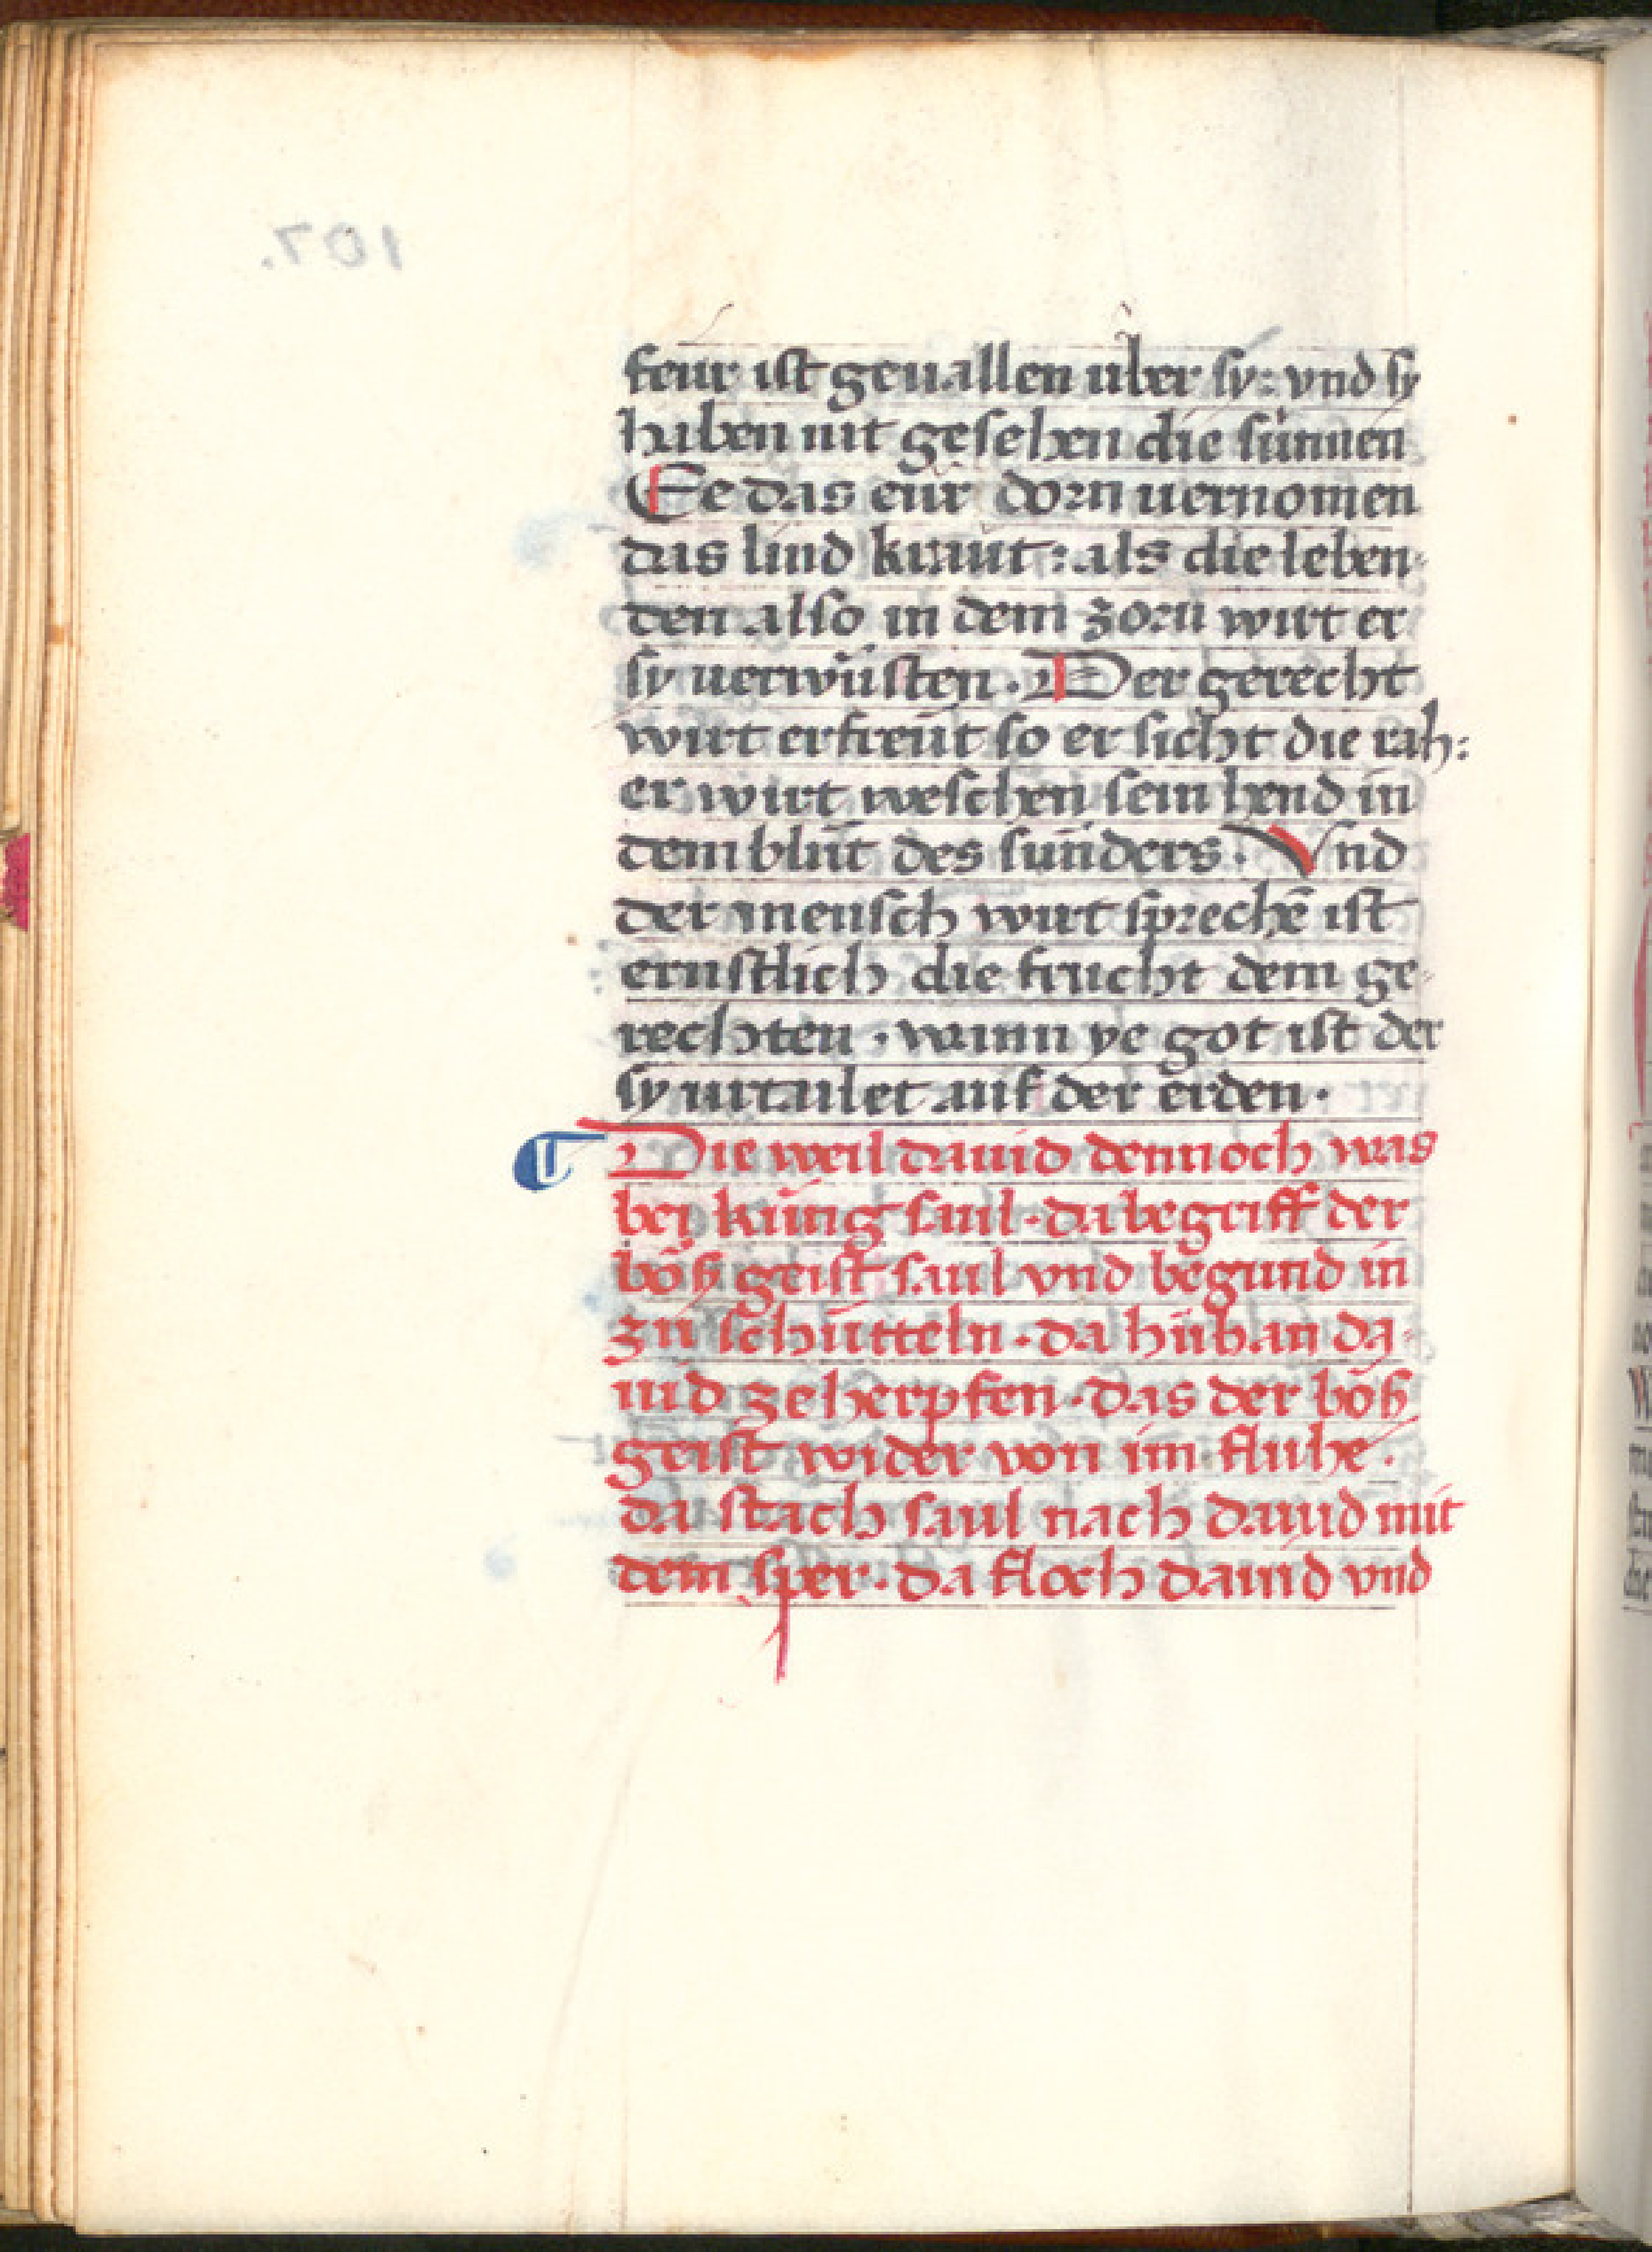 feür ist geuallen über sy: vnd sy
haben nit gesehen die sünnen
Ee das eür dorn uernomen
das lind kraut: als die leben¬
den also in dem zorn wirt er
sy uerwüsten. Der gerecht
wirt erfreüt so er sicht die rah:
er wirt weschen sein hend in
dem blůt des sünders. Vnd
der mensch wirt sprechē ist
ernstlich die frucht dem ge¬
rechten. wann ye got ist der
sy urtailet auf der erden.
Die weil dauid dennoch was
bei küng saul. da begriff der
böß geist saul vnd begund in
zů schütteln. da hůb an da¬
uid ze herpfen. das der böß
geist wider von im fluhe.
da stach saul nach dauid mit
dem sper. da floch dauid vnd